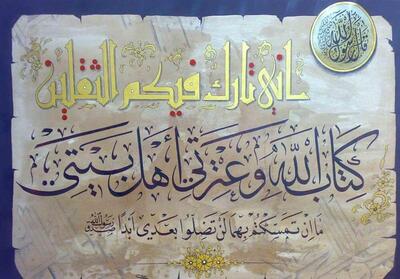 قال رسول الله
إني تارك فيكم الثقلين
كتاب الله وعترتي أهل بيتي
ما إن تمسكتم بهما لن تضلوا بعدي أبدا